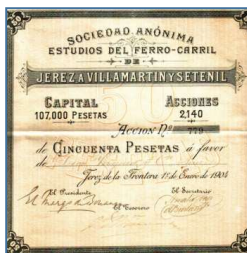 SOCIEDAD ANÓNIMA
ESTUDIOS DEL FERRO-CARRIL
DE
JEREZ A VILLAMARTIN Y SETENIL
CAPITAL
107.000 PESETAS
ACCIONES
2,140
Accion Nº 779
de CINCUENTA PESETAS á favor
de
Jerez de la Frontera 1º de Enero de 1901
El Presidente
El Secretario
El Tesorero